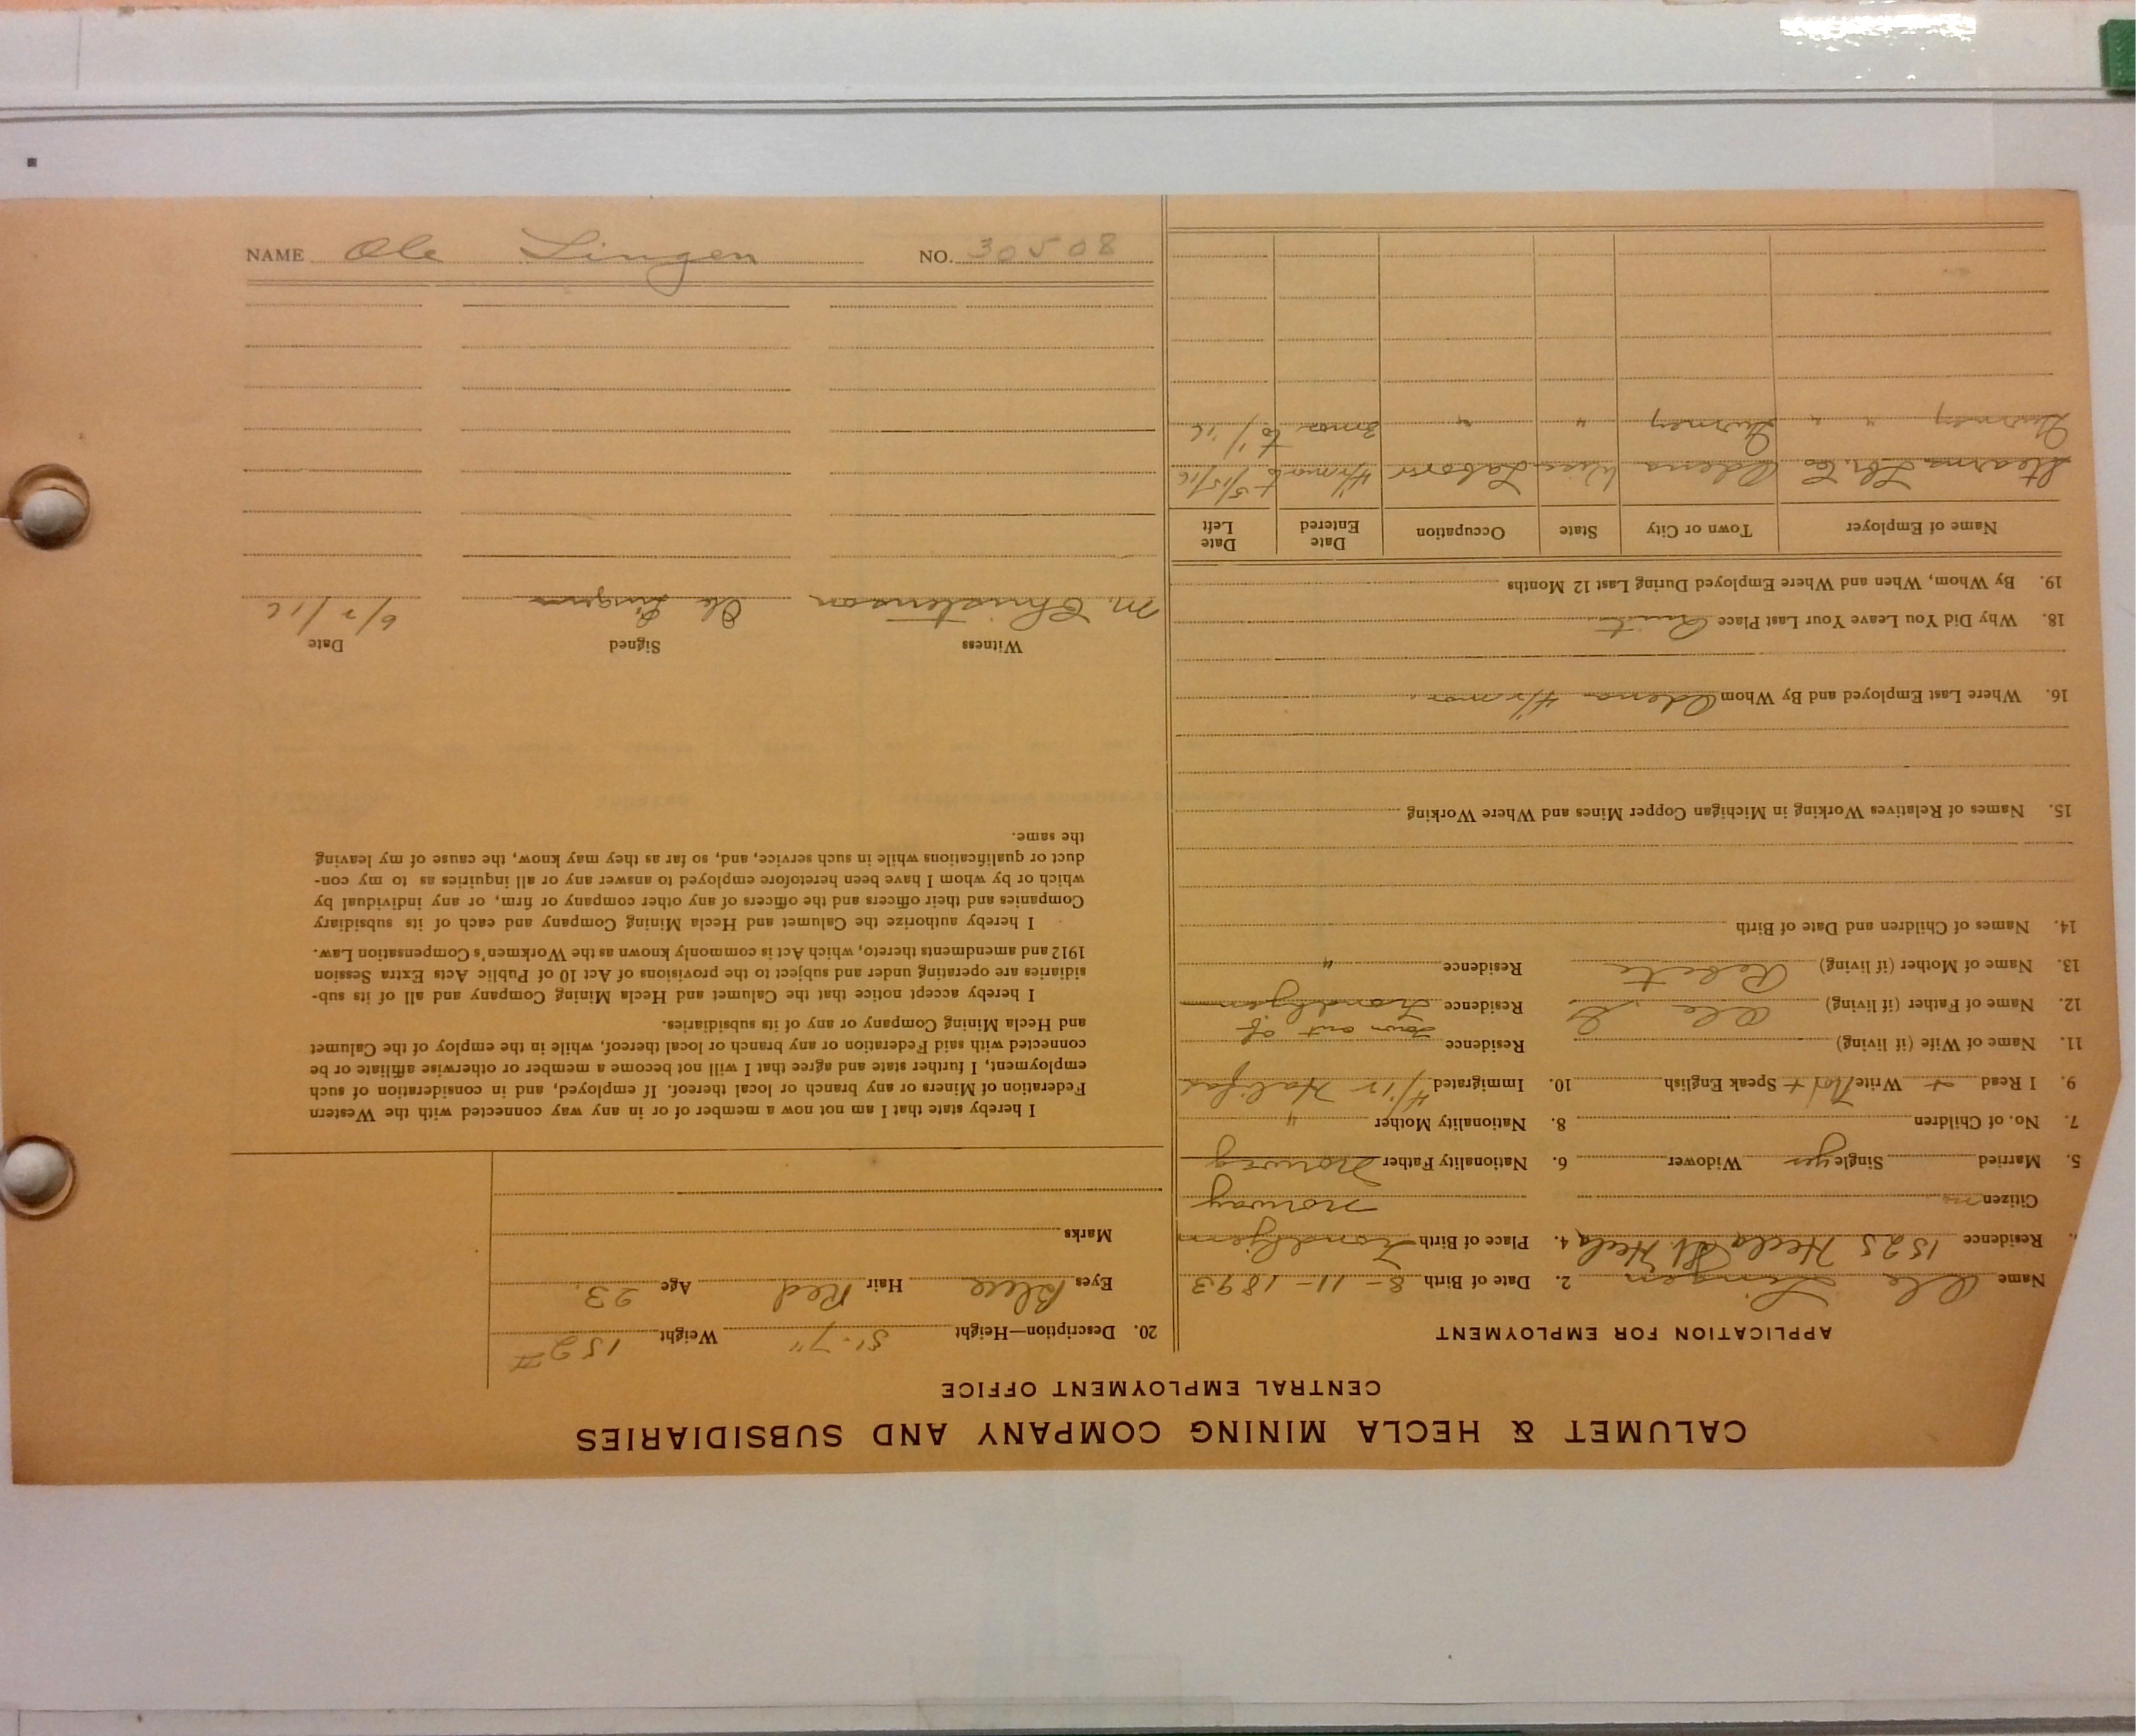 CALUMET & HECLA MINING COMPANY AND SUBSIDIARIES
CENTRAL EMPLOYMENT OFFICE
APPLICATION FOR EMPLOYMENT
Name Ole Lingen 2. Date of Birth 8-11-1893
Residence 1525 Hecla St. Hecla 4. Place of Birth Trondhjem
Citizen Norway
5. Married Single yes Widower 6. Nationality Father Norweg
7. No. of Children 8. Nationality Mother "
9. I Read + Write Not + Speak English 10. Immigrated Halifax
11. Name of Wife (if living) Residence
12. Name of Father (if living) Ole Residence Trondhjem
13. Name of Mother (if living) Residence "
14. Names of Children and Date of Birth
15. Names of Relatives Working in Michigan Copper Mines and Where Working
16. Where Last Employed and By Whom Odena
18. Why Did You Leave Your Last Place Quit
19. By Whom, When and Where Employed During Last 12 Months
Name of Employer Town or City State Occupation Date Entered Date Left
Stearns Lbr. Co Odena Wis Laborer 5/15/16
Gurney " " Gurney " " 3 mos to
20. Description—Height 5'-7" Weight 152#
Eyes Blue Hair Red Age 23.
Marks
I hereby state that I am not now a member of or in any way connected with the Western
Federation of Miners or any branch or local thereof. If employed, and in consideration of such
employment, I further state and agree that I will not become a member or otherwise affiliate or be
connected with said Federation or any branch or local thereof, while in the employ of the Calumet
and Hecla Mining Company or any of its subsidiaries.
I hereby accept notice that the Calumet and Hecla Mining Company and all of its sub-
sidiaries are operating under and subject to the provisions of Act 10 of Public Acts Extra Session
1912 and amendments thereto, which Act is commonly known as the Workmen's Compensation Law.
I hereby authorize the Calumet and Hecla Mining Company and each of its subsidiary
Companies and their officers and the officers of any other company or firm, or any individual by
which or by whom I have been heretofore employed to answer any or all inquiries as to my con-
duct or qualifications while in such service, and, so far as they may know, the cause of my leaving
the same.
Witness Signed Date
M. Christenson Ole Lingen 6/2/16
NAME Ole Lingen NO. 30508